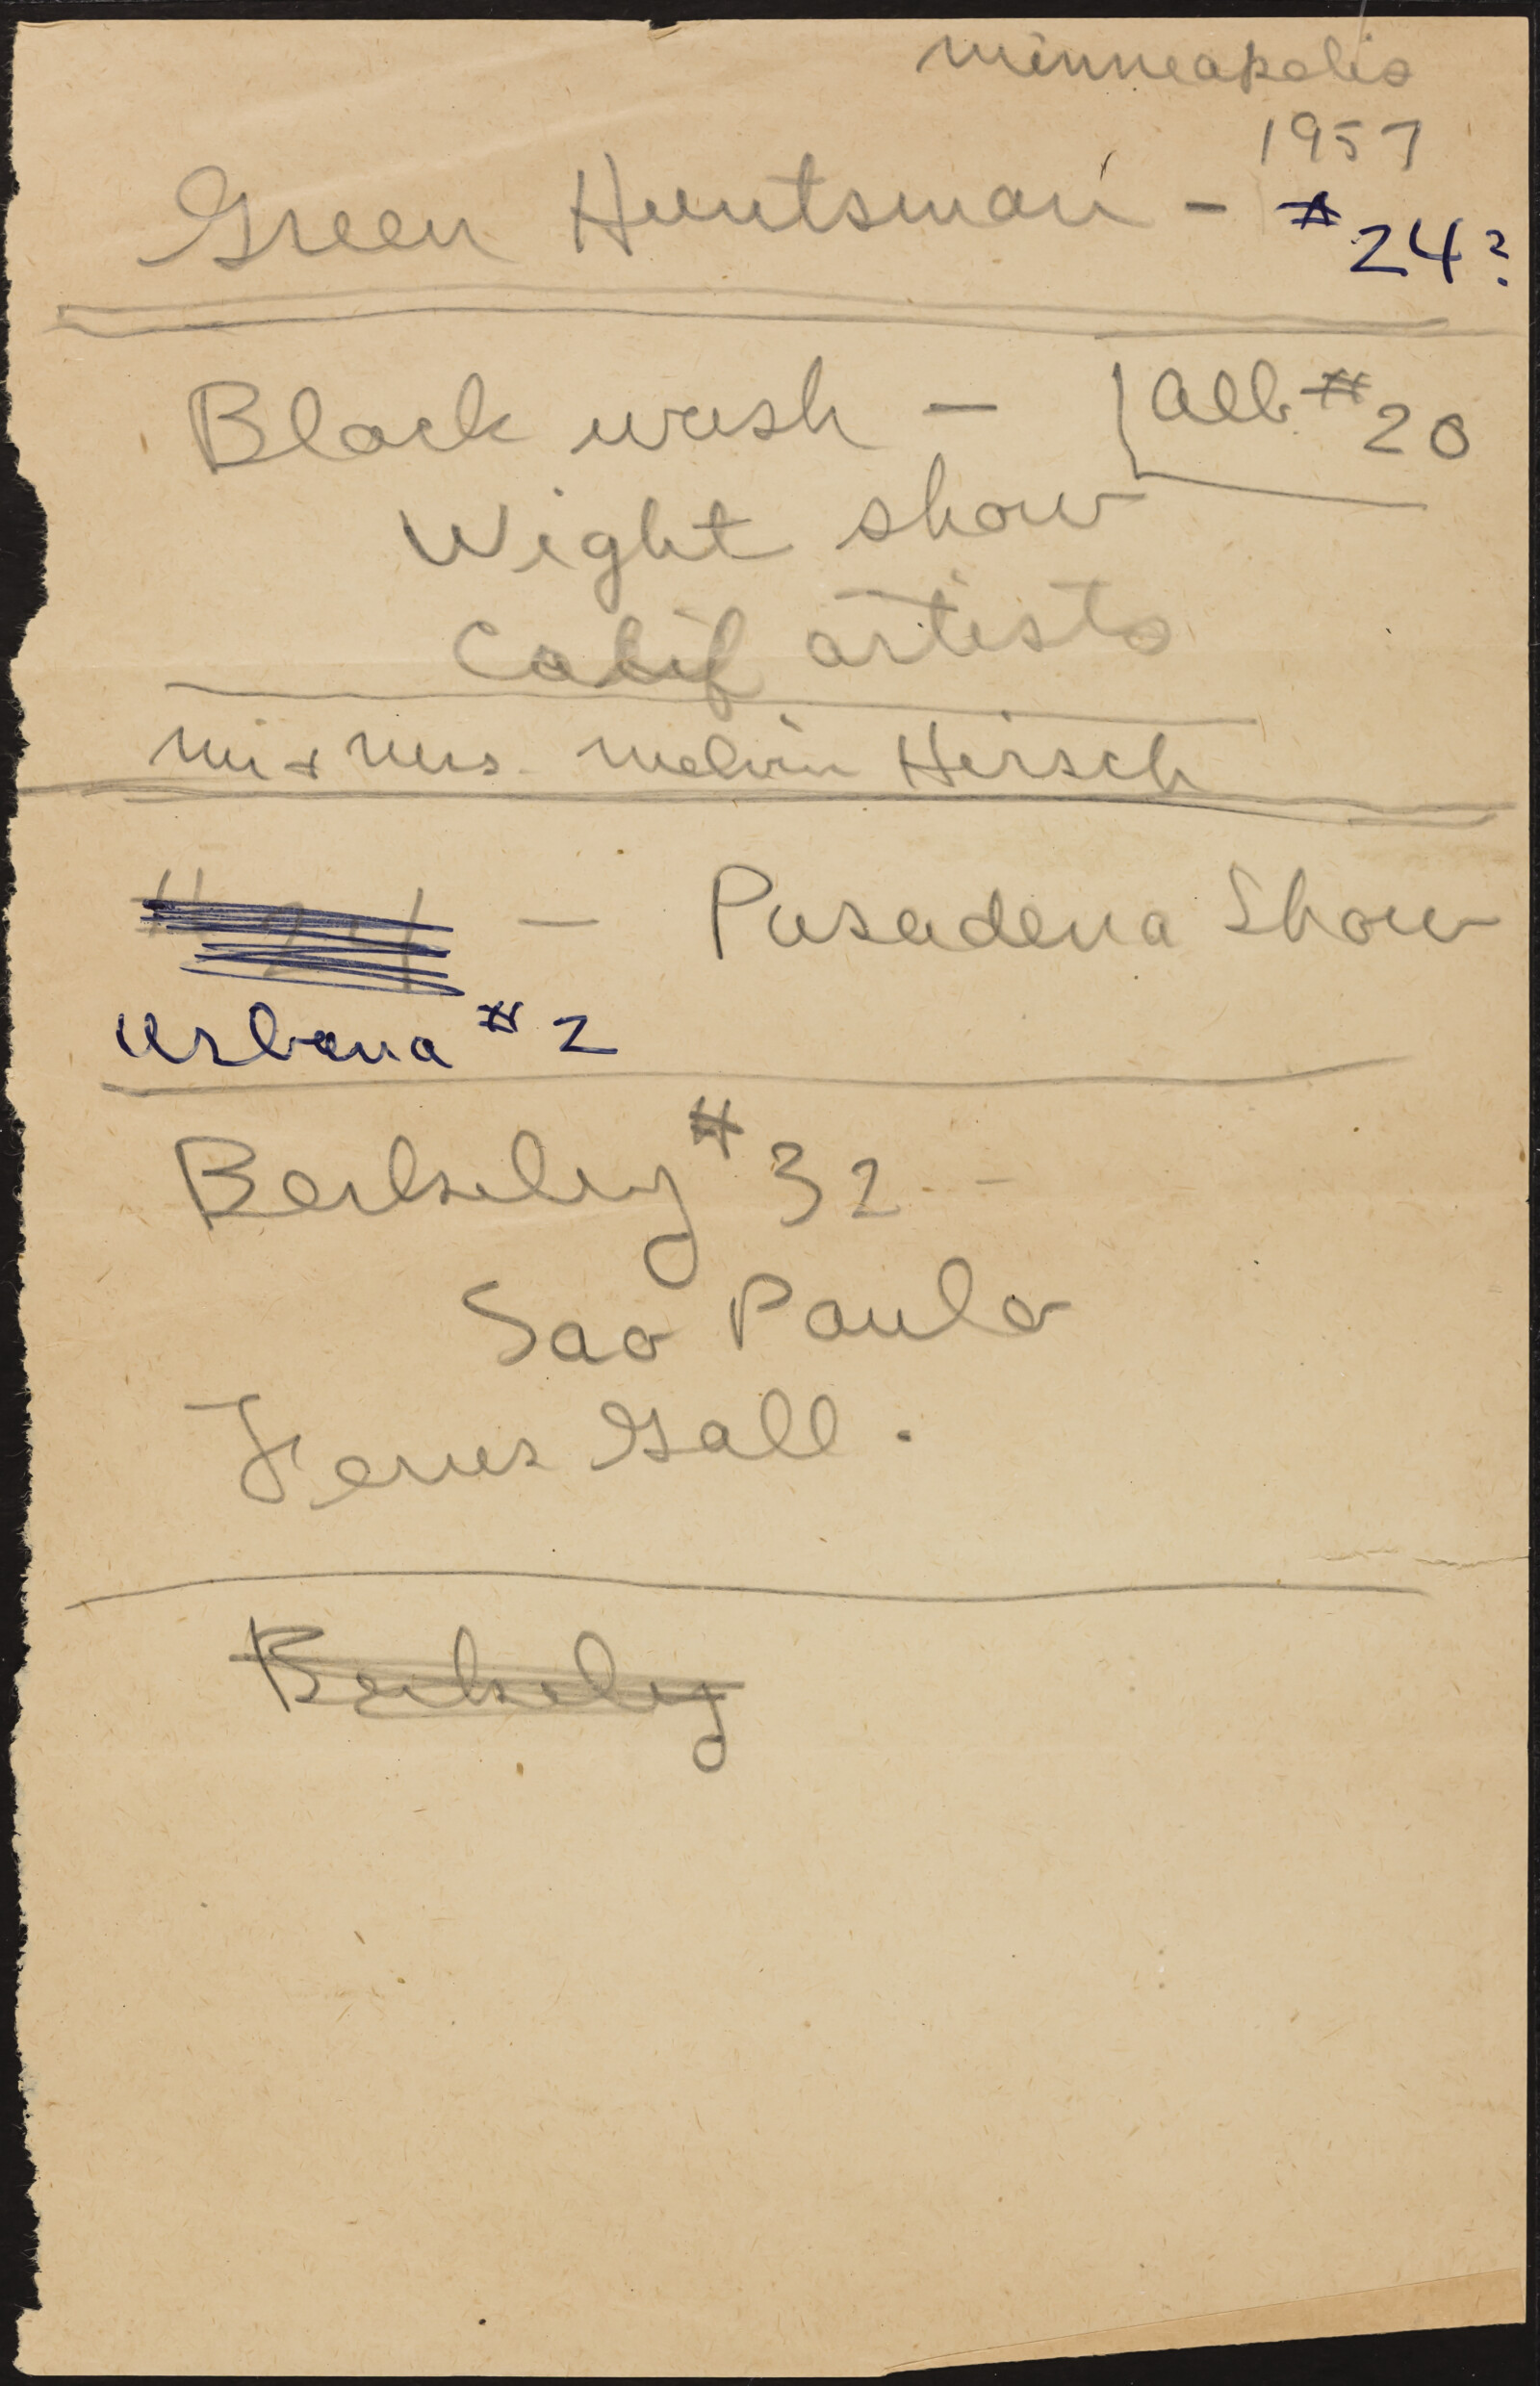 Minneapolis
1957
Green Huntsman - #24?
Black wash - Alb #20
Wight show
Calif artists
Mr & Mrs. Melvin Hirsch
- Pasadena Show
Urbana #2
Berkeley #32 -
Sao Paulo
Ferus Gall.
Berkeley